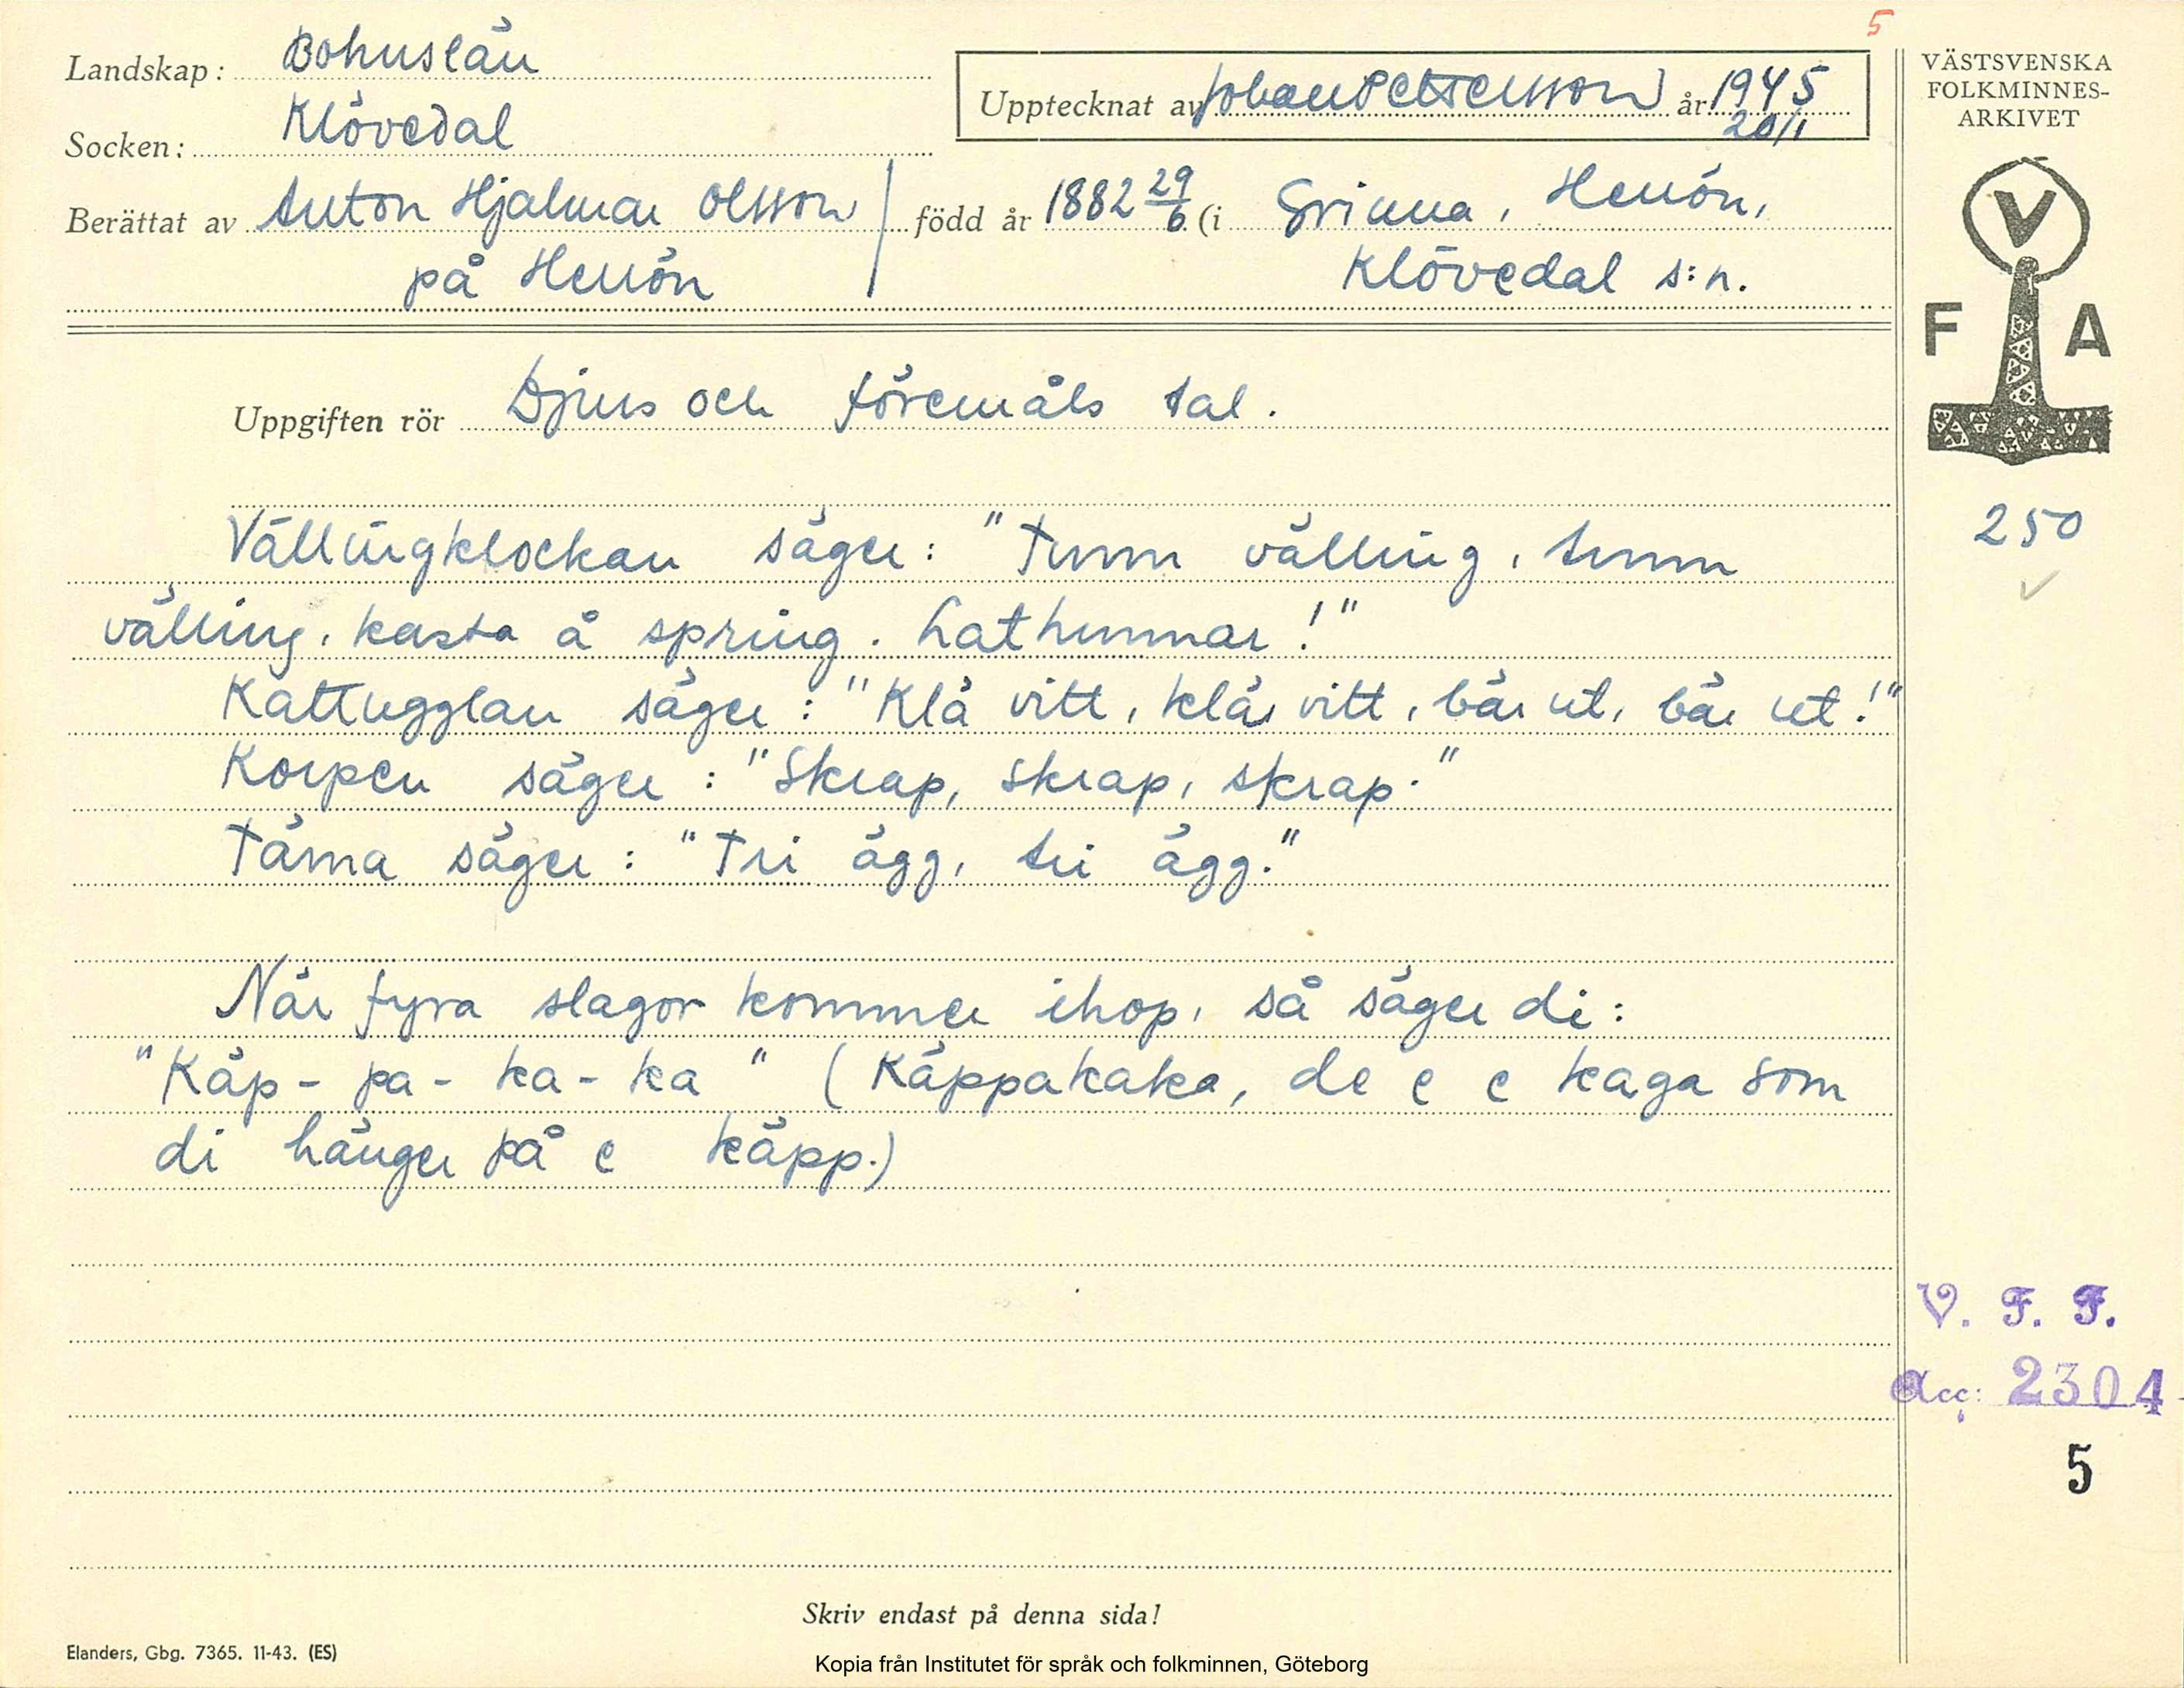 5
Landskap: Bohuslän
Socken: Klövedal
Upptecknat av Johan Pettersson år 1945
20/1
Berättat av Anton Hjalmar Olsson född år 1882 29/6 (i Grinna, Henön,
på Henön Klövedal s:n.
VÄSTSVENSKA
FOLKMINNES-
ARKIVET
V
F A
Uppgiften rör Djurs och föremåls tal.
250
Vällingklockan säger: "Tunn välling, tunn
välling, kasta å spring. Lathunnar!"
Kattugglan säger: "Klä vitt, klä vitt, bär ut, bär ut!"
Korpen säger: "Skrap, skrap, skrap."
Tärna säger: "Tri ägg, tri ägg."
När fyra slagor kommer ihop, så säger di:
"Käp-pa-ka-ka" (Käppakaka, de e e kaga som
di hänger på e käpp.)
V. F. F.
Acc: 2304
5
Skriv endast på denna sida!
Elanders, Gbg. 7365. 11-43. (ES)
Kopia från Institutet för språk och folkminnen, Göteborg